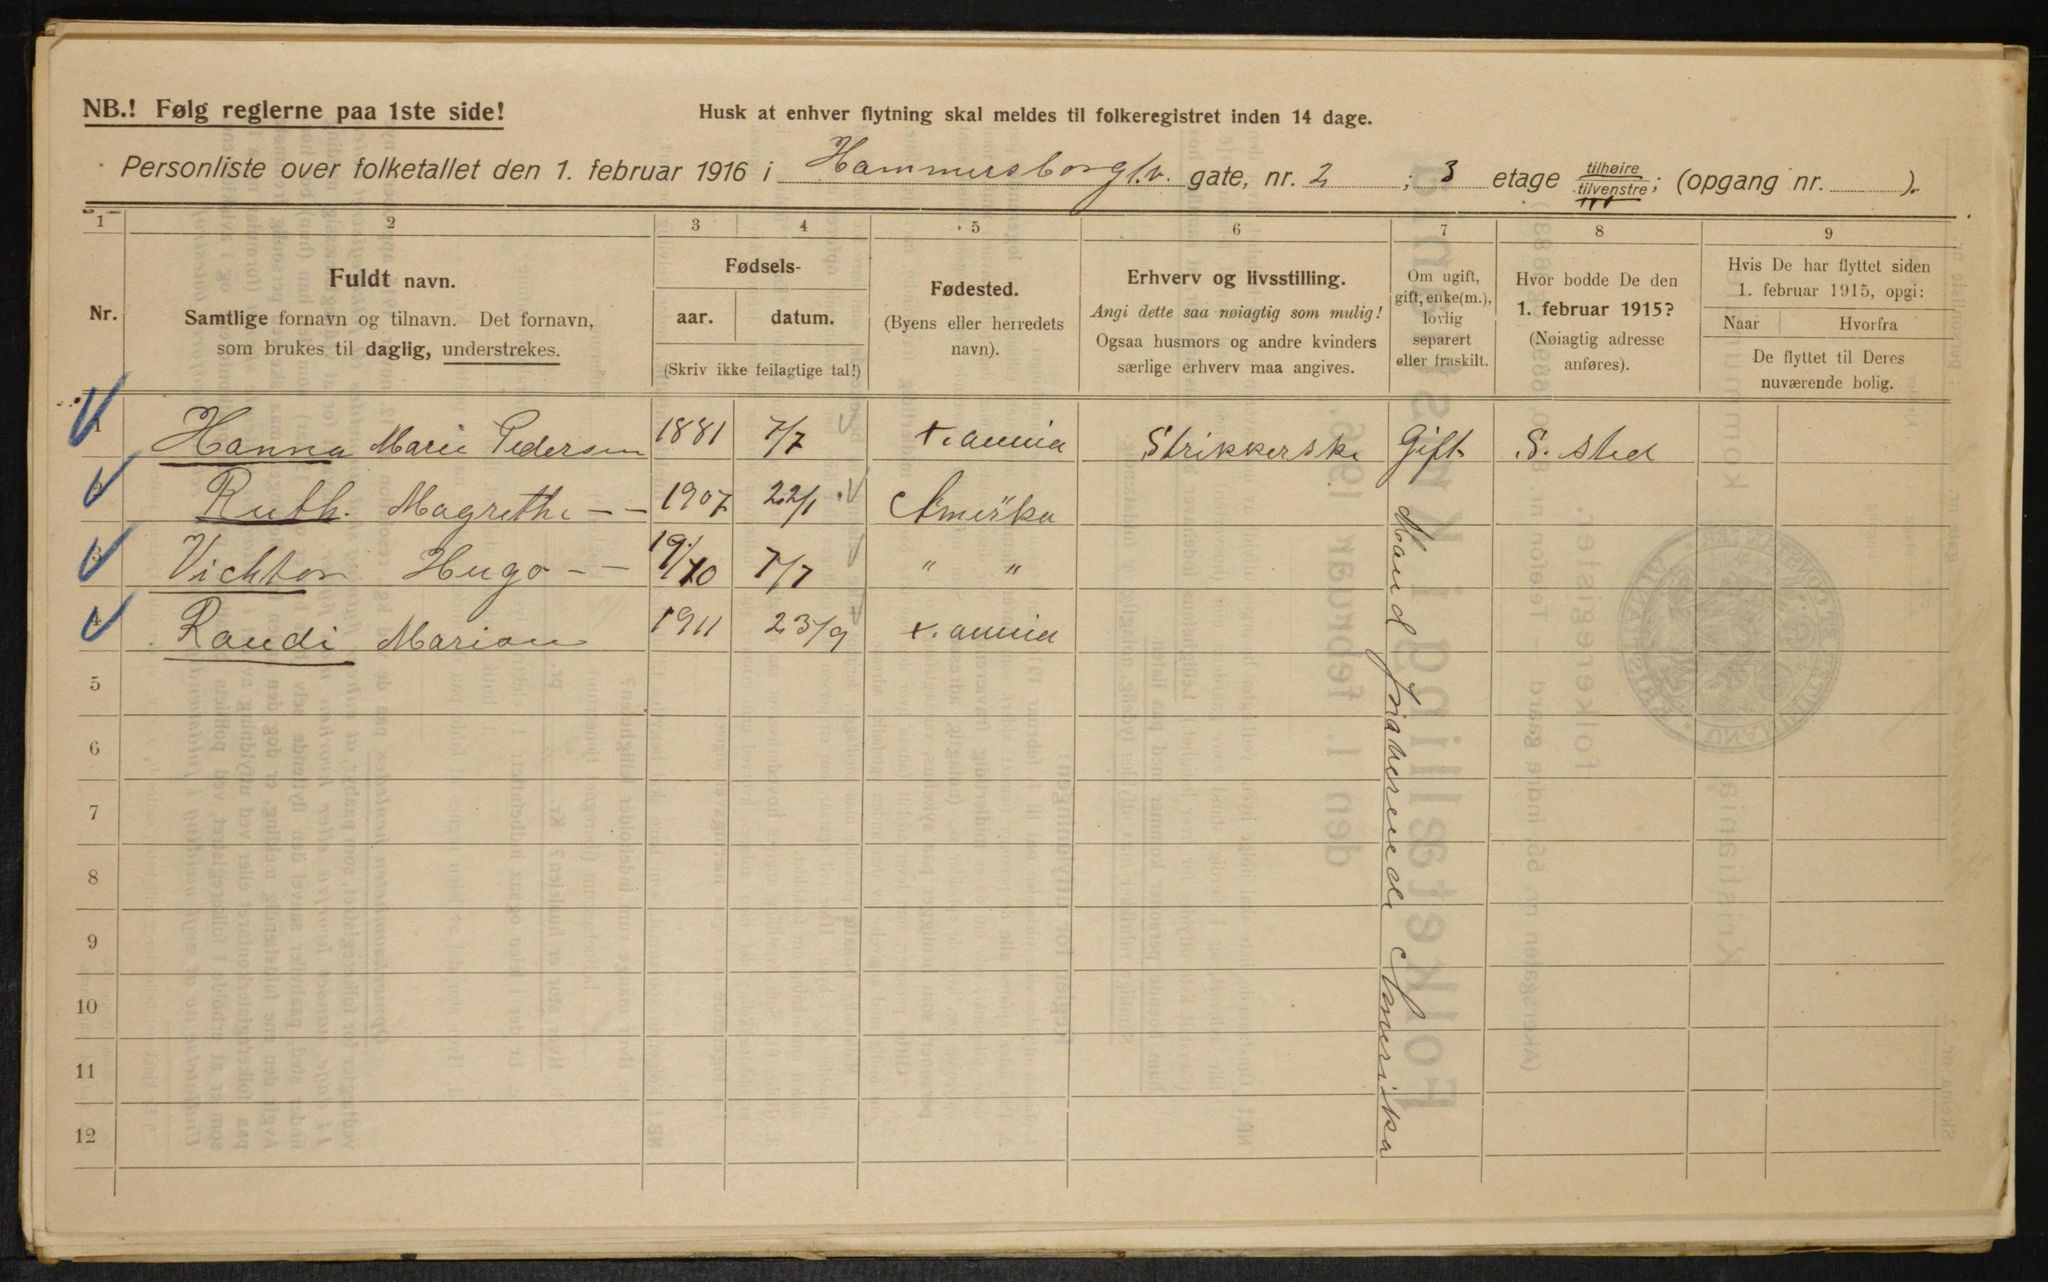 NB.! Følg reglerne paa 1ste side!
Husk at enhver flytning skal meldes til folkeregistret inden 14 dage.
Personliste over folketallet den 1. februar 1916 i Hammersborg t.v. gate, nr. 2 ; 3 etage tilhøire tilvenstre; (opgang nr. ).
1 2 3 4 5 6 7 8 9
Nr.
Fuldt navn.
Samtlige fornavn og tilnavn. Det fornavn,
som brukes til daglig, understrekes.
Fødsels-
aar. datum.
(Skriv ikke feilagtige tal!)
Fødested.
(Byens eller herredets
navn).
Erhverv og livsstilling.
Angi dette saa nøiagtig som mulig!
Ogsaa husmors og andre kvinders
særlige erhverv maa angives.
Om ugift,
gift, enke(m.),
lovlig
separert
eller fraskilt.
Hvor bodde De den
1. februar 1915?
(Nøiagtig adresse
anføres).
Hvis De har flyttet siden
1. februar 1915, opgi:
Naar Hvorfra
De flyttet til Deres
nuværende bolig.
1 Hanna Marie Pedersen 1881 7/7 Kr.ania Strikkerske Gift S. sted
2 Ruth. Magrethe - - 1907 22/1 Amerika
3 Vichton Hugo - - 19/10 7/7 " "
4 Randi Marion 1911 23/9 Kr.ania
Mand fraværende Amerika
5
6
7
8
9
10
11
12